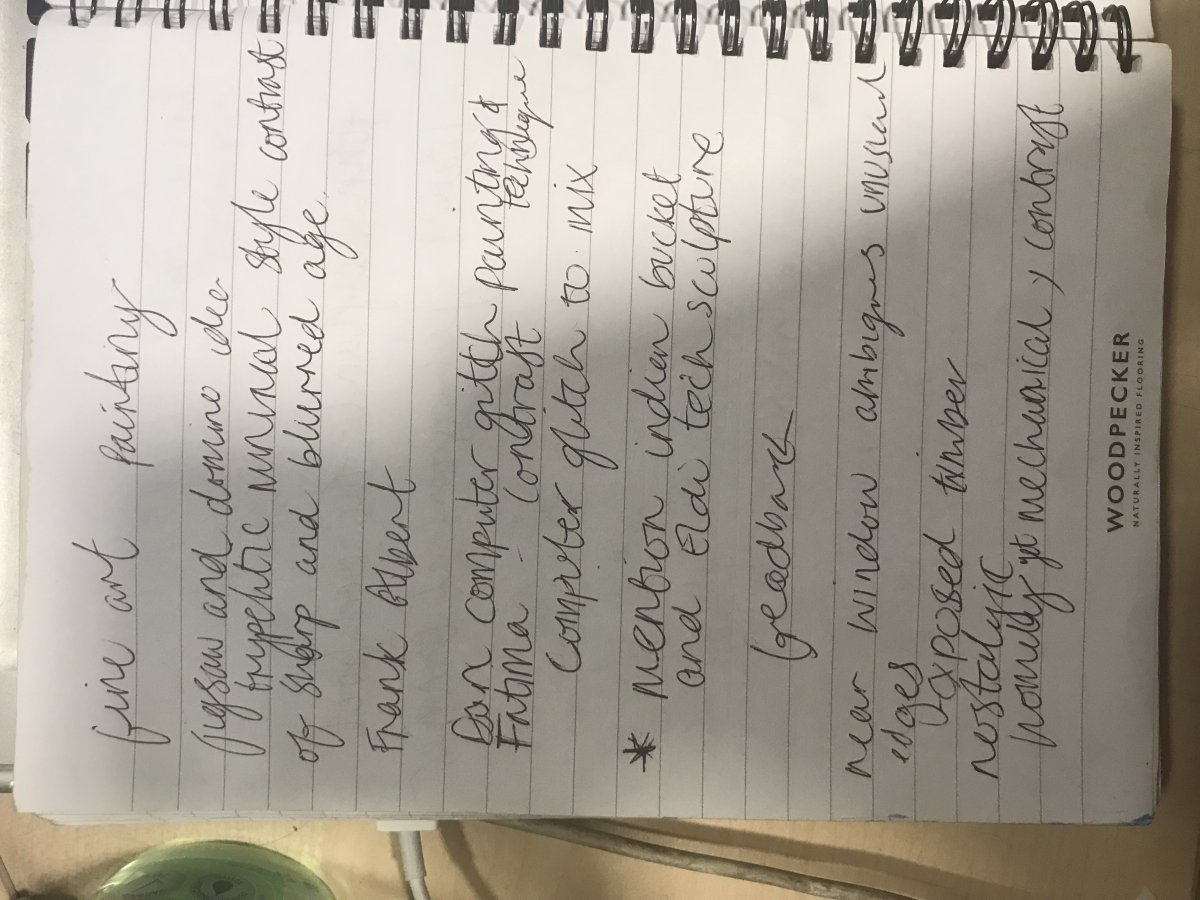 fine art painting
jigsaw and domino idea
tryphtic minimal style contrast
of sharp and blurred age.
Frank Albert
Dan computer glitch painting &
technique
Fatima - contrast
computer glitch to mix
* mention indian bucket
and Eladi tech sculpture
feedback
near window ambigues unusual
edges
exposed timber
nostalgic
homily yet mechanical, contrast
WOODPECKER
NATURALLY INSPIRED FLOORING